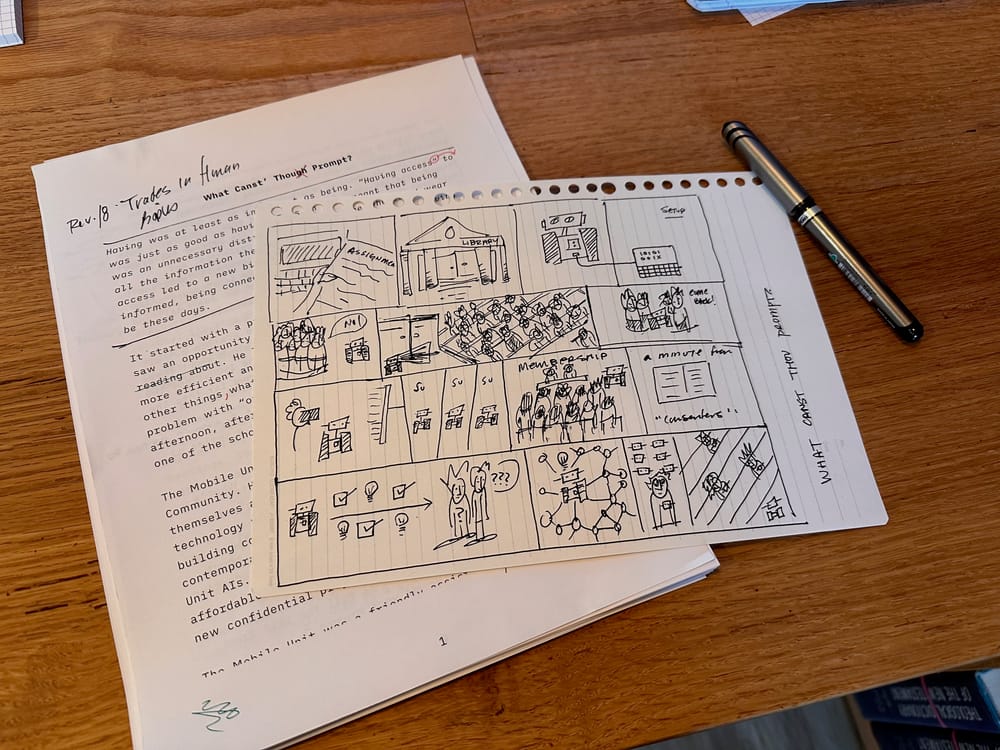 Rev. 18 . Trades in Human
Books
What Canst' Though Prompt?
Having was at least as in
as being. "Having access to
was just as good as hav
ant that being
was an unnecessary dist
wear
all the information the
access led to a new bi
informed, being conne
be these days.
It started with a p
saw an opportunity
reading about. He
more efficient an
other things, wha
problem with "o
afternoon, afte
one of the scho
The Mobile Un
Community. H
themselves a
technology
building co
contempora
Unit AIs.
affordable
new confidential p
The Mobile Unit was a friendly assist
1
ASSIGNME
LIBRARY
SETUP
NO!
COME
BACK!
SU
SU
SU
MEMBERSHIP
a minute from
"Consenders"
???
WHAT CANST THOU PROMPT?
THEOLOGICAL DICTIONARY
OF THE NEW TESTAMENT